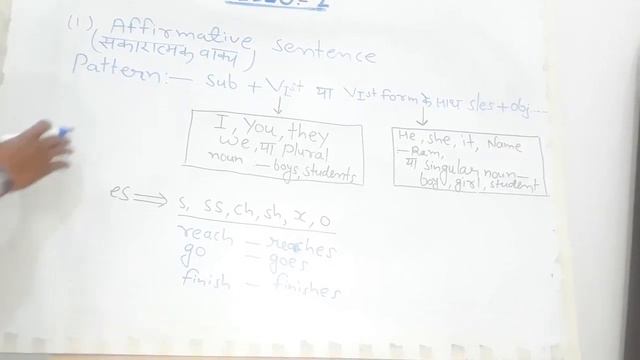 (1) Affirmative Sentence
(सकारात्मक वाक्य)
Pattern:— Sub + VIst या VIst form के साथ s/es + obj...
I, You, they
We, या plural
noun — boys, students
He, she, it, Name
— Ram,
या singular noun —
boy, girl, student
es ⇒ s, ss, ch, sh, x, o
reach — reaches
go = goes
finish — finishes